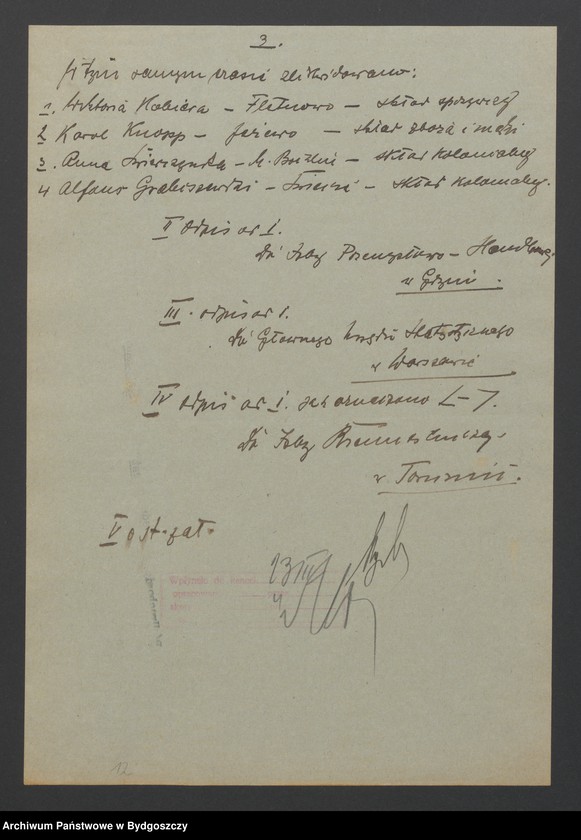 3.
W tym samym czasie zlikwidowano:
1. Wiktoria Kobiera – Fletnowo – skład spożywczy
2 Karol Knopp – Jeżewo – skład zboża i mąki
3. Anna – M. – skład kolonialny
4 Alfons Grabiszewski – Świecie – skład kolonialny.
II Odpis ad I.
Do Izby Przemysłowo – Handlowej
w Gdyni.
III. odpis ad I.
Do Głównego Urzędu Statystycznego
w Warszawie
IV odpis ad I. jak oznaczono L – 7.
Do Izby Rzemieślniczej
w Toruniu.
V ost. zał.
13
12
Archiwum Państwowe w Bydgoszczy